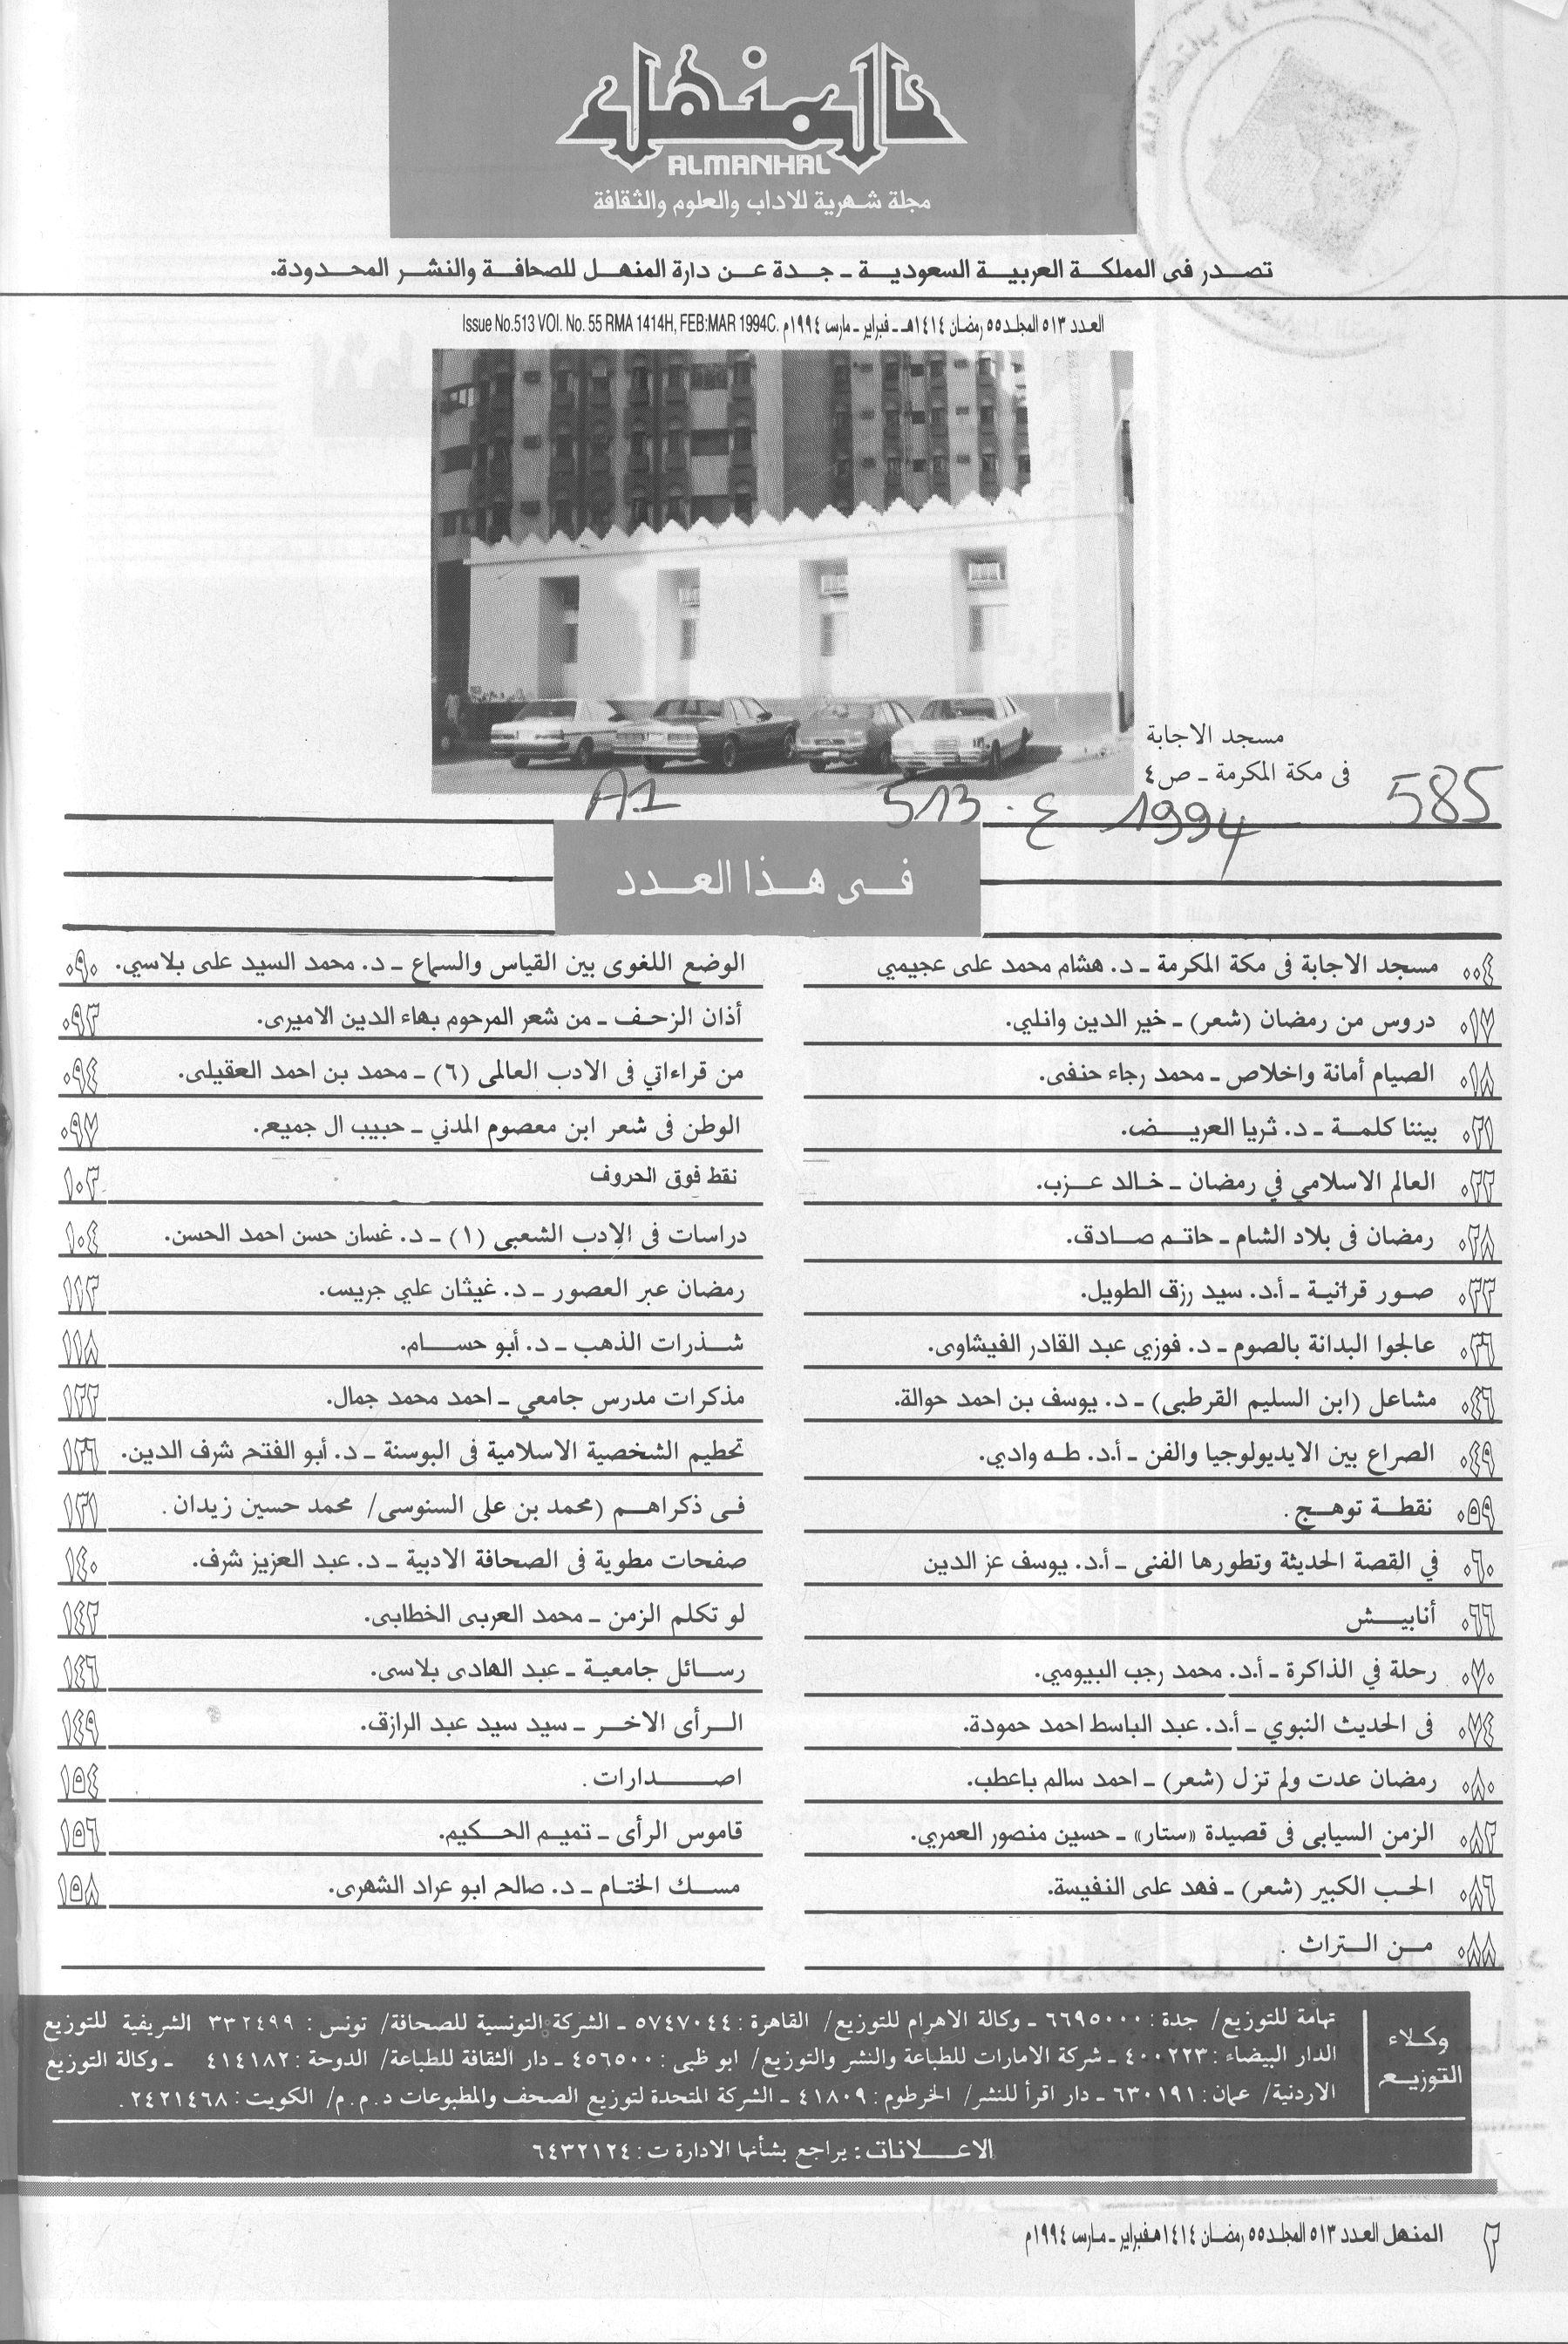 المنهل
ALMANHAL
مجلة شهرية للاداب والعلوم والثقافة
تصدر فى المملكة العربية السعودية ـ جدة عن دارة المنهل للصحافة والنشر المحدودة.
العدد ٥١٣ المجلد ٥٥ رمضان ١٤١٤هـ ـ فبراير ـ مارس ١٩٩٤م Issue No.513 VOl. No. 55 RMA 1414H, FEB:MAR 1994C.
مسجد الاجابة
فى مكة المكرمة ـ ص٤
585 1994 ع. 513 A1
فى هذا العدد
٠٠٤ مسجد الاجابة فى مكة المكرمة ـ د. هشام محمد على عجيمي
٠١٧ دروس من رمضان (شعر) ـ خير الدين وانلي.
٠١٨ الصيام أمانة واخلاص ـ محمد رجاء حنفى.
٠٢١ بيننا كلمة ـ د. ثريا العريض.
٠٢٢ العالم الاسلامي في رمضان ـ خالد عزب.
٠٢٨ رمضان فى بلاد الشام ـ حاتم صادق.
٠٣٢ صور قرآنية ـ أ.د. سيد رزق الطويل.
٠٣٦ عالجوا البدانة بالصوم ـ د. فوزي عبد القادر الفيشاوى.
٠٤٦ مشاعل (ابن السليم القرطبى) ـ د. يوسف بن احمد حوالة.
٠٤٩ الصراع بين الايديولوجيا والفن ـ أ.د. طه وادي.
٠٥٩ نقطة توهج .
٠٦٠ في القصة الحديثة وتطورها الفنى ـ أ.د. يوسف عز الدين
٠٦٦ أنابيش
٠٧٠ رحلة في الذاكرة ـ أ.د. محمد رجب البيومي.
٠٧٤ فى الحديث النبوي ـ أ.د. عبد الباسط احمد حمودة.
٠٨٠ رمضان عدت ولم تزل (شعر) ـ احمد سالم باعطب.
٠٨٢ الزمن السيابى فى قصيدة «ستار» ـ حسين منصور العمري.
٠٨٦ الحب الكبير (شعر) ـ فهد على النفيسة.
٠٨٨ من التراث .
٠٩٠ الوضع اللغوى بين القياس والسماع ـ د. محمد السيد على بلاسي.
٠٩٣ أذان الزحف ـ من شعر المرحوم بهاء الدين الاميرى.
٠٩٤ من قراءاتي فى الادب العالمى (٦) ـ محمد بن احمد العقيلى.
٠٩٧ الوطن فى شعر ابن معصوم المدني ـ حبيب ال جميع.
١٠٣ نقط فوق الحروف
١٠٤ دراسات فى الادب الشعبى (١) ـ د. غسان حسن احمد الحسن.
١١٣ رمضان عبر العصور ـ د. غيثان علي جريس.
١١٨ شذرات الذهب ـ د. أبو حسام.
١٢٢ مذكرات مدرس جامعي ـ احمد محمد جمال.
١٢٦ تحطيم الشخصية الاسلامية فى البوسنة ـ د. أبو الفتح شرف الدين.
١٣١ فى ذكراهم (محمد بن على السنوسى/ محمد حسين زيدان .
١٤٠ صفحات مطوية فى الصحافة الادبية ـ د. عبد العزيز شرف.
١٤٢ لو تكلم الزمن ـ محمد العربى الخطابى.
١٤٦ رسائل جامعية ـ عبد الهادى بلاسى.
١٤٩ الرأى الاخر ـ سيد سيد عبد الرازق.
١٥٤ اصدارات .
١٥٦ قاموس الرأى ـ تميم الحكيم.
١٥٨ مسك الختام ـ د. صالح ابو عراد الشهرى.
وكلاء
التوزيع
تهامة للتوزيع/ جدة : ٦٦٩٥٠٠٠ ـ وكالة الاهرام للتوزيع/ القاهرة : ٥٧٤٧٠٤٤ ـ الشركة التونسية للصحافة/ تونس : ٣٣٢٤٩٩ الشريفية للتوزيع
الدار البيضاء : ٤٠٠٢٢٣ ـ شركة الامارات للطباعة والنشر والتوزيع/ ابو ظبى : ٤٥٦٥٠٠ ـ دار الثقافة للطباعة/ الدوحة : ٤١٤١٨٢ ـ وكالة التوزيع
الاردنية/ عمان : ٦٣٠١٩١ ـ دار اقرأ للنشر/ الخرطوم : ٤١٨٠٩ ـ الشركة المتحدة لتوزيع الصحف والمطبوعات د.م.م/ الكويت : ٢٤٢١٤٦٨ .
الاعلانات : يراجع بشأنها الادارة ت : ٦٤٣٢١٢٤
٢ المنهل العدد ٥١٣ المجلد ٥٥ رمضان ١٤١٤هـ فبراير ـ مارس ١٩٩٤م